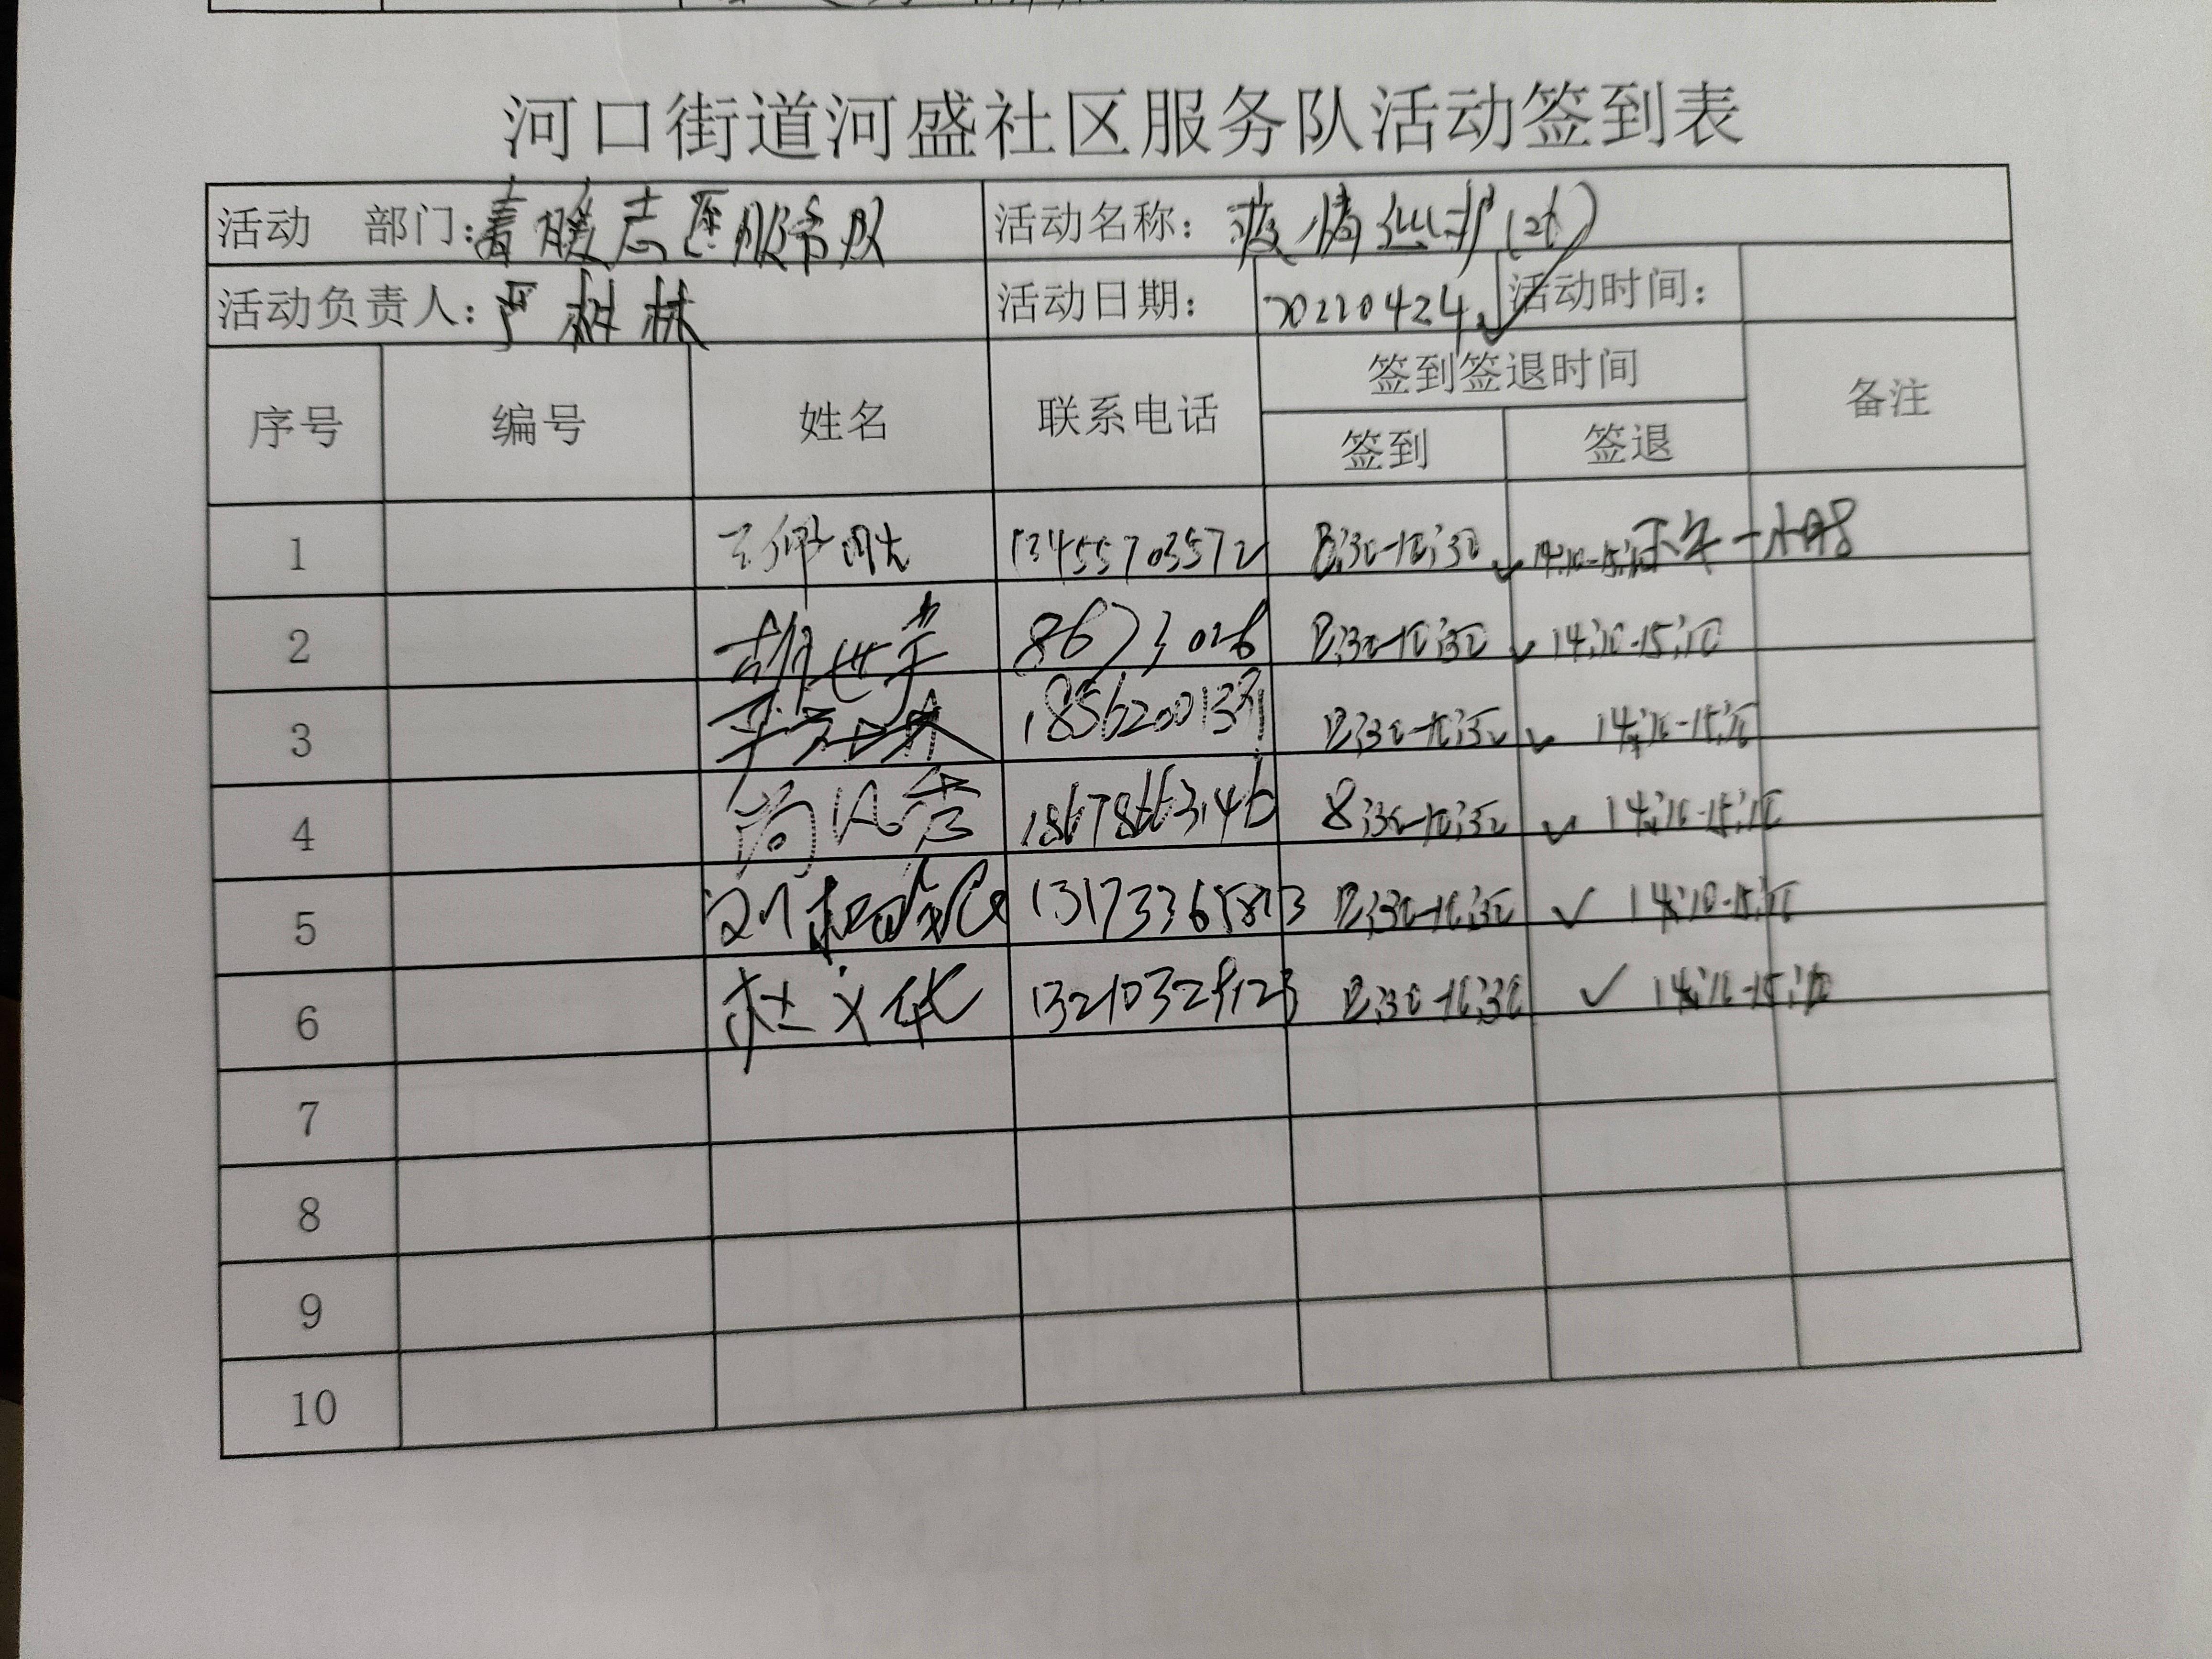 河口街道河盛社区服务队活动签到表
活动 部门: 春暖志愿服务队 活动名称: 疫情
活动负责人: 严树林 活动日期: 20220424 活动时间:
序号 编号 姓名 联系电话 签到签退时间 备注
签到 签退
1 13455703572 8:30-10:30 ✓ 14:10-15:10 下午一小时
2 胡世美 8673026 8:30-10:30 ✓ 14:10-15:10
3 8:30-10:30 ✓ 14:10-15:10
4 尚风香 8:30-10:30 ✓ 14:10-15:10
5 8:30-10:30 ✓ 14:10-15:10
6 杜义华 8:30-10:30 ✓ 14:10-15:10
7
8
9
10